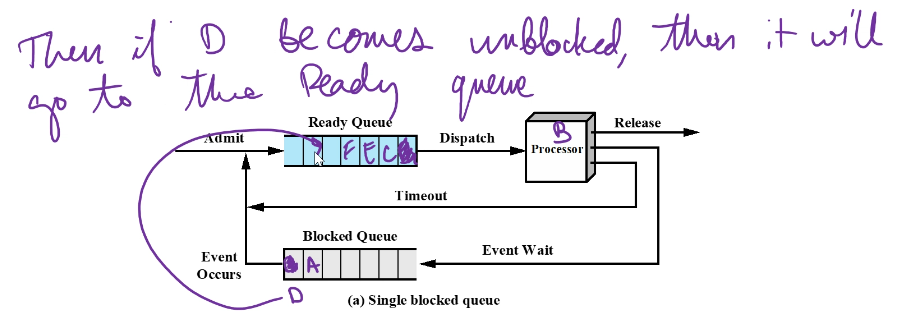 Then if D becomes unblocked, then it will
go to the Ready queue
Ready Queue
Admit
F E C
Dispatch
B
Processor
Release
Timeout
Blocked Queue
Event Wait
A
Event
Occurs
D
(a) Single blocked queue